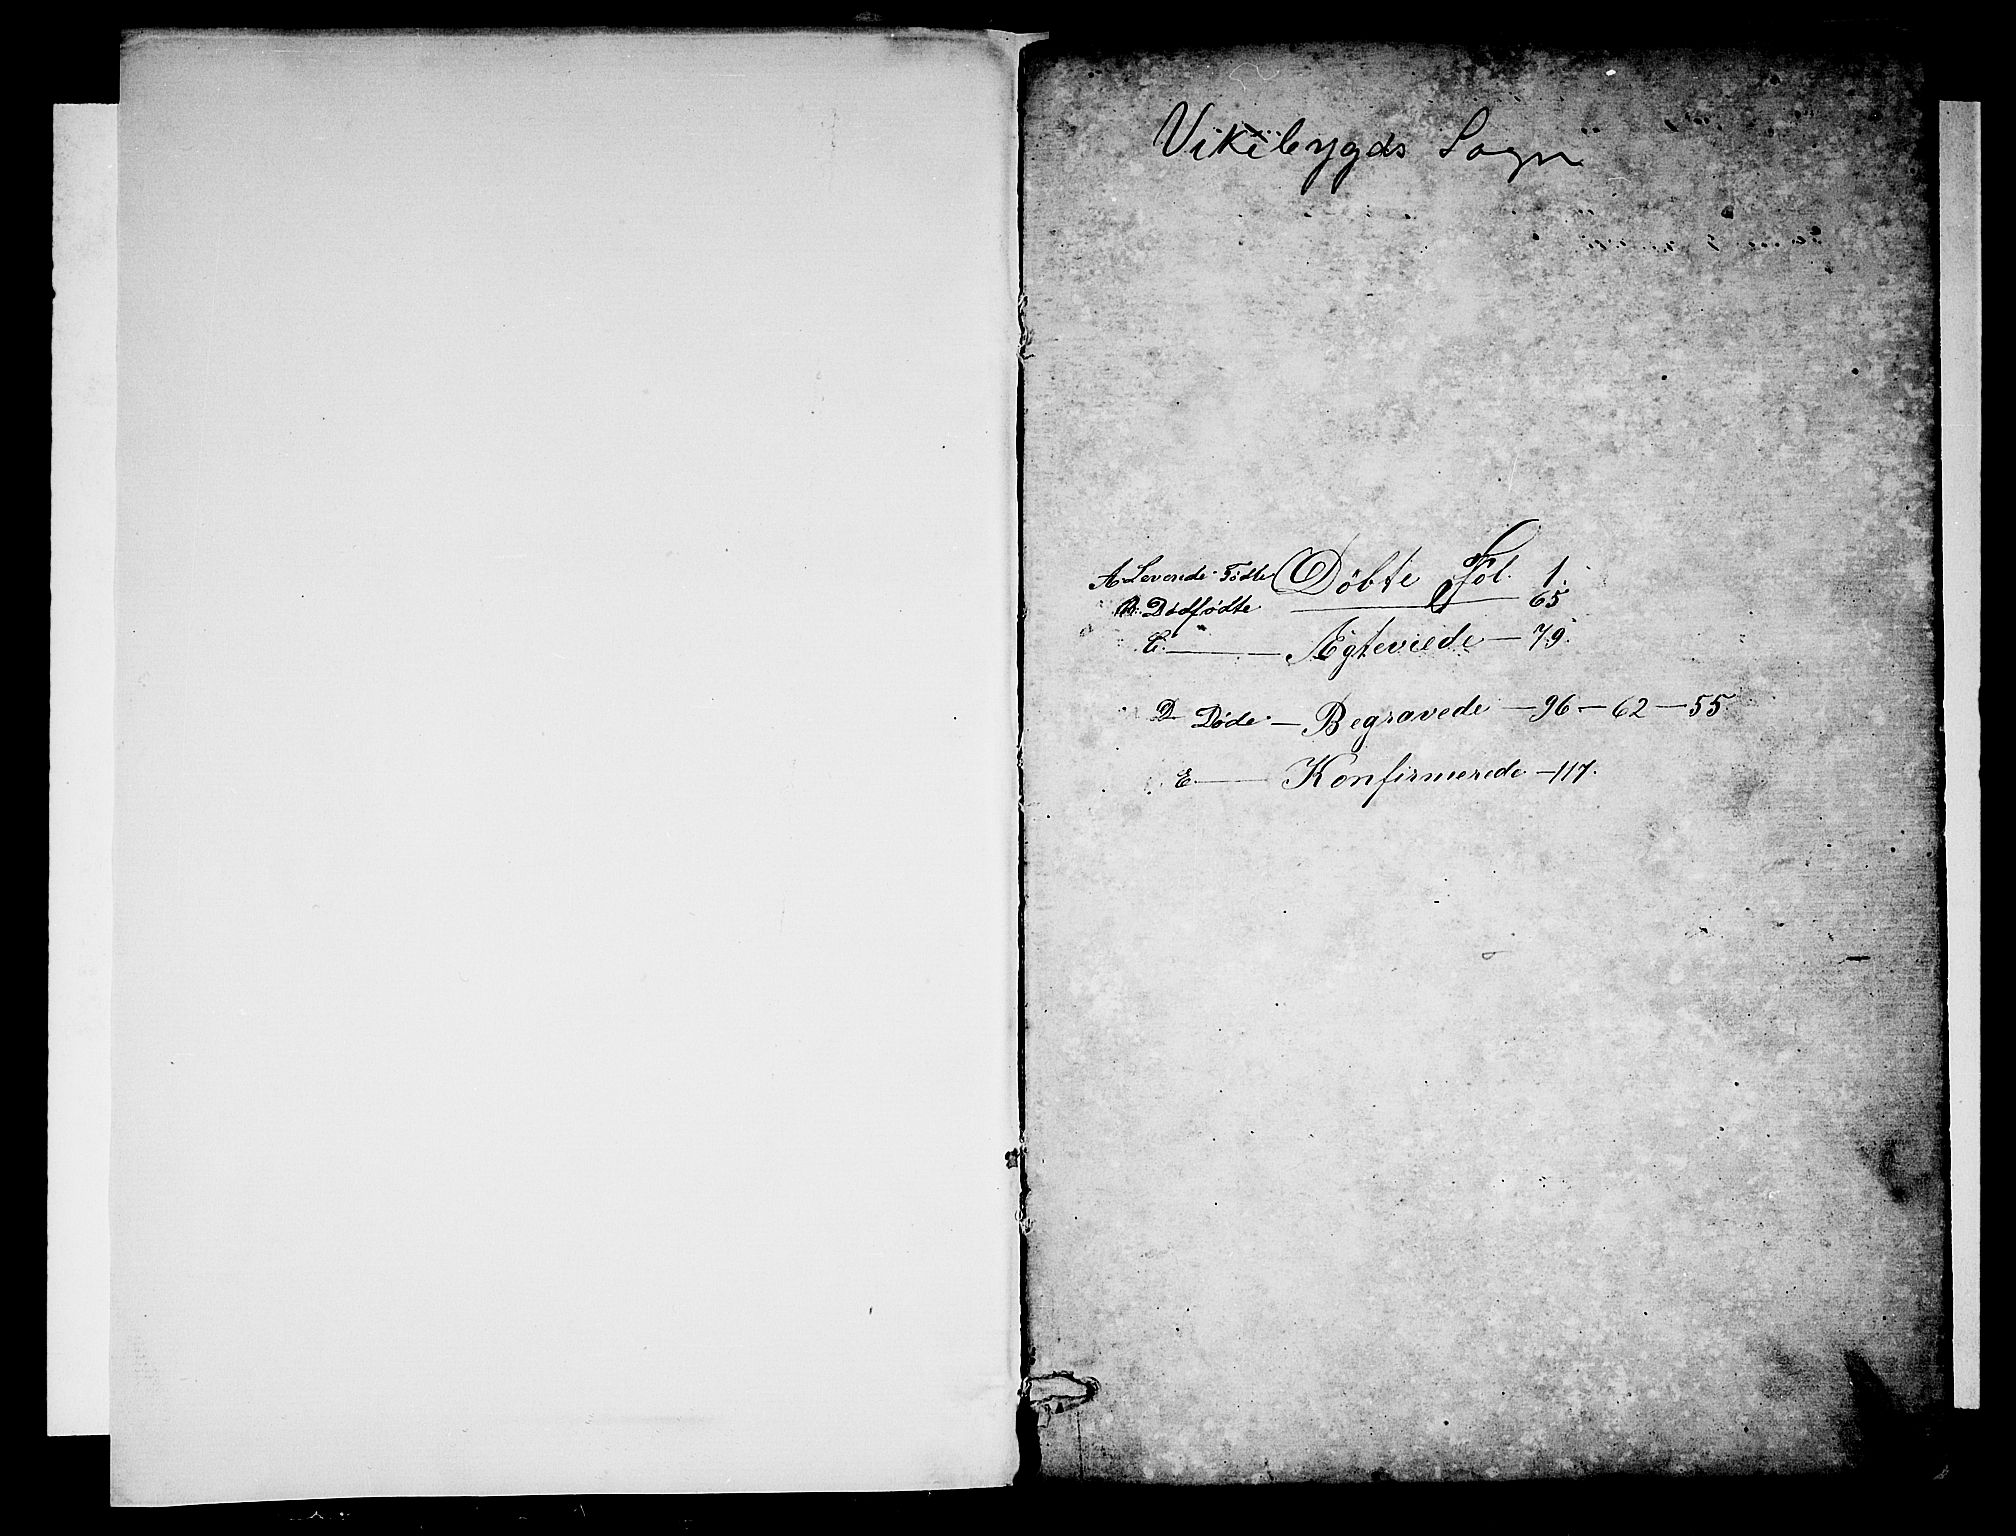 Vikebygds Sogn
A. Levende Fødte Døbte Fol. 1.
B. Dødfødte — 65
C. — Ægteviede — 79.
D Døde. — Begravede — 96 — 62 — 55
E — Konfirmerede — 117.